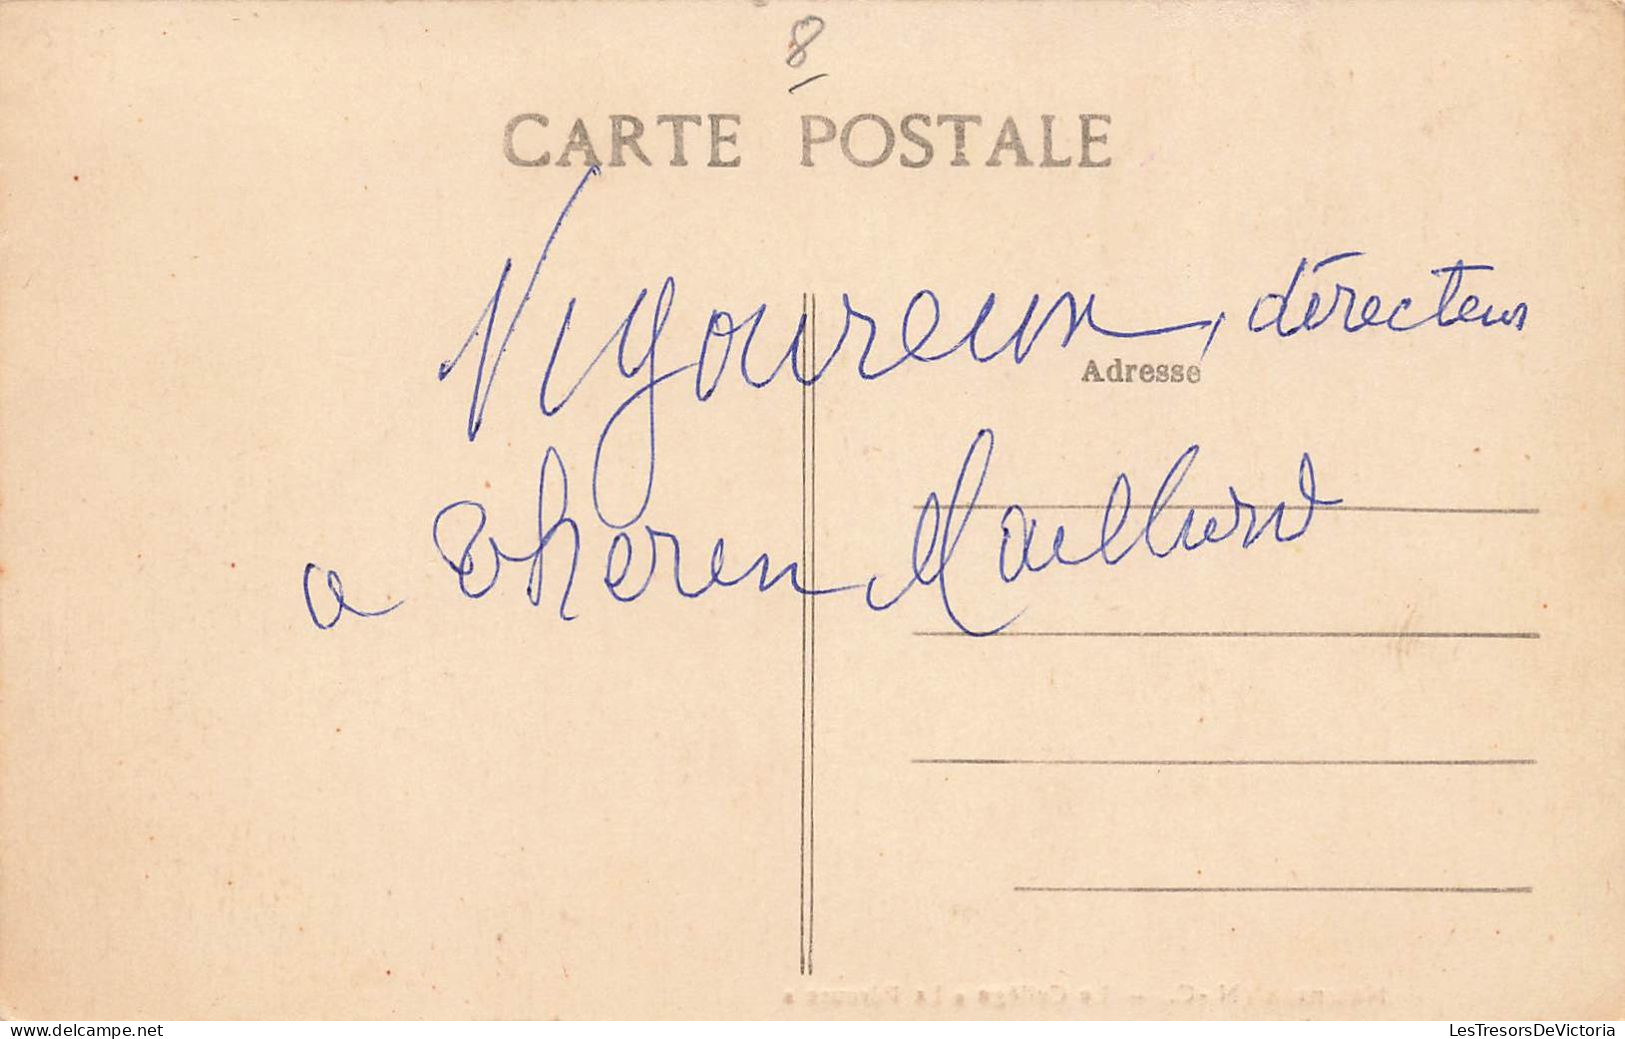 8
CARTE POSTALE
Vigoureux, directeur
Adresse
a Theren Maillard
LesTresorsDeVictoria